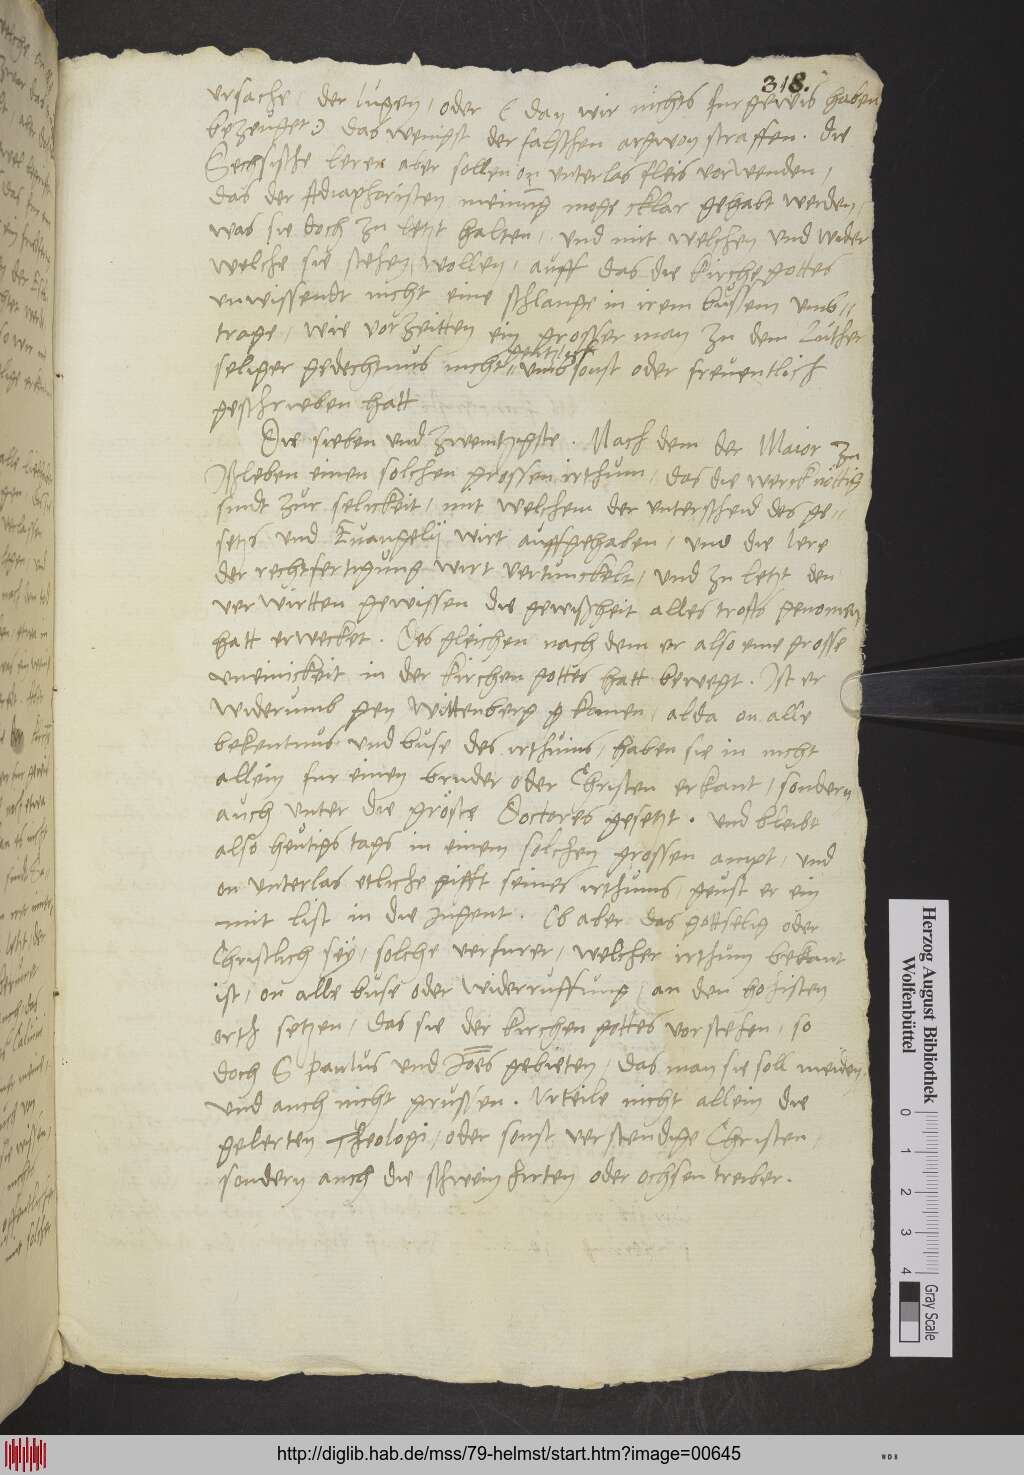 318.
ursache / der lugen / oder ( dan wir nichts fur gewis haben
bezeuget) das wenigst der falschen argwon straffen. die
Sechsische lerer aber sollen on unterlas fleis vorwenden /
das der Adiaphoristen meinung moge cklar gehabt werden /
was sie doch zu letzt halten / und mit welchen und wider
welche sie stehen wollen / auff das die kirche gottes
unwissendt nicht eine schlange in irem bussem umb//
trage / wie vorzeitten ein grosser man zu dem Luther
seliger gedechtnus nicht umbsonst oder freuentlich
geschrieben hatt
Die sieben und zwentzigste. Nach dem der Maior zu
Isleben einen solchen grossen irthum / das die werck nöttig
sindt zur selickeit / mit welchem der unterscheid des ge//
setzs und Euangelij wirt auffgehaben / und die lere
der rechtfertigung wirt vertunckelt / und zu letzt den
verwirtten gewissen die gewißheit alles trosts genomen
hatt erwecket. Des gleichen nach dem er also eine grosse
uneinickeit in der kirchen gottes hatt bewegt. Ist er
widerumb gen Wittenberg gkomen / alda on alle
bekentnus und buse des irthums / haben sie in nicht
allein fur einen bruder oder Christen erkant / sondern
auch unter die gröste Doctores gesetzt. und bleibt
also heutigs tags in einem solchen grossen ampt / und
on unterlas etliche gifft seines irthums geust er ein
mit list in die jugent. Ob aber das gottselig oder
Christlich sey / solche verfurer / welcher irthum bekant
ist / on alle buse oder widerruffung / an den hohisten
orth setzen / das sie der kirchen gottes vorstehen / so
doch S Paulus und Joes gebieten / das man sie soll meiden /
und auch nicht grussen. Urteile nicht allein die
gelerten Theologi / oder sonst verstendige Christen /
sondern auch die schwein hirten oder ochsen treiber.
Herzog August Bibliothek
Wolfenbüttel
0 1 2 3 4
Gray Scale
http://diglib.hab.de/mss/79-helmst/start.htm?image=00645